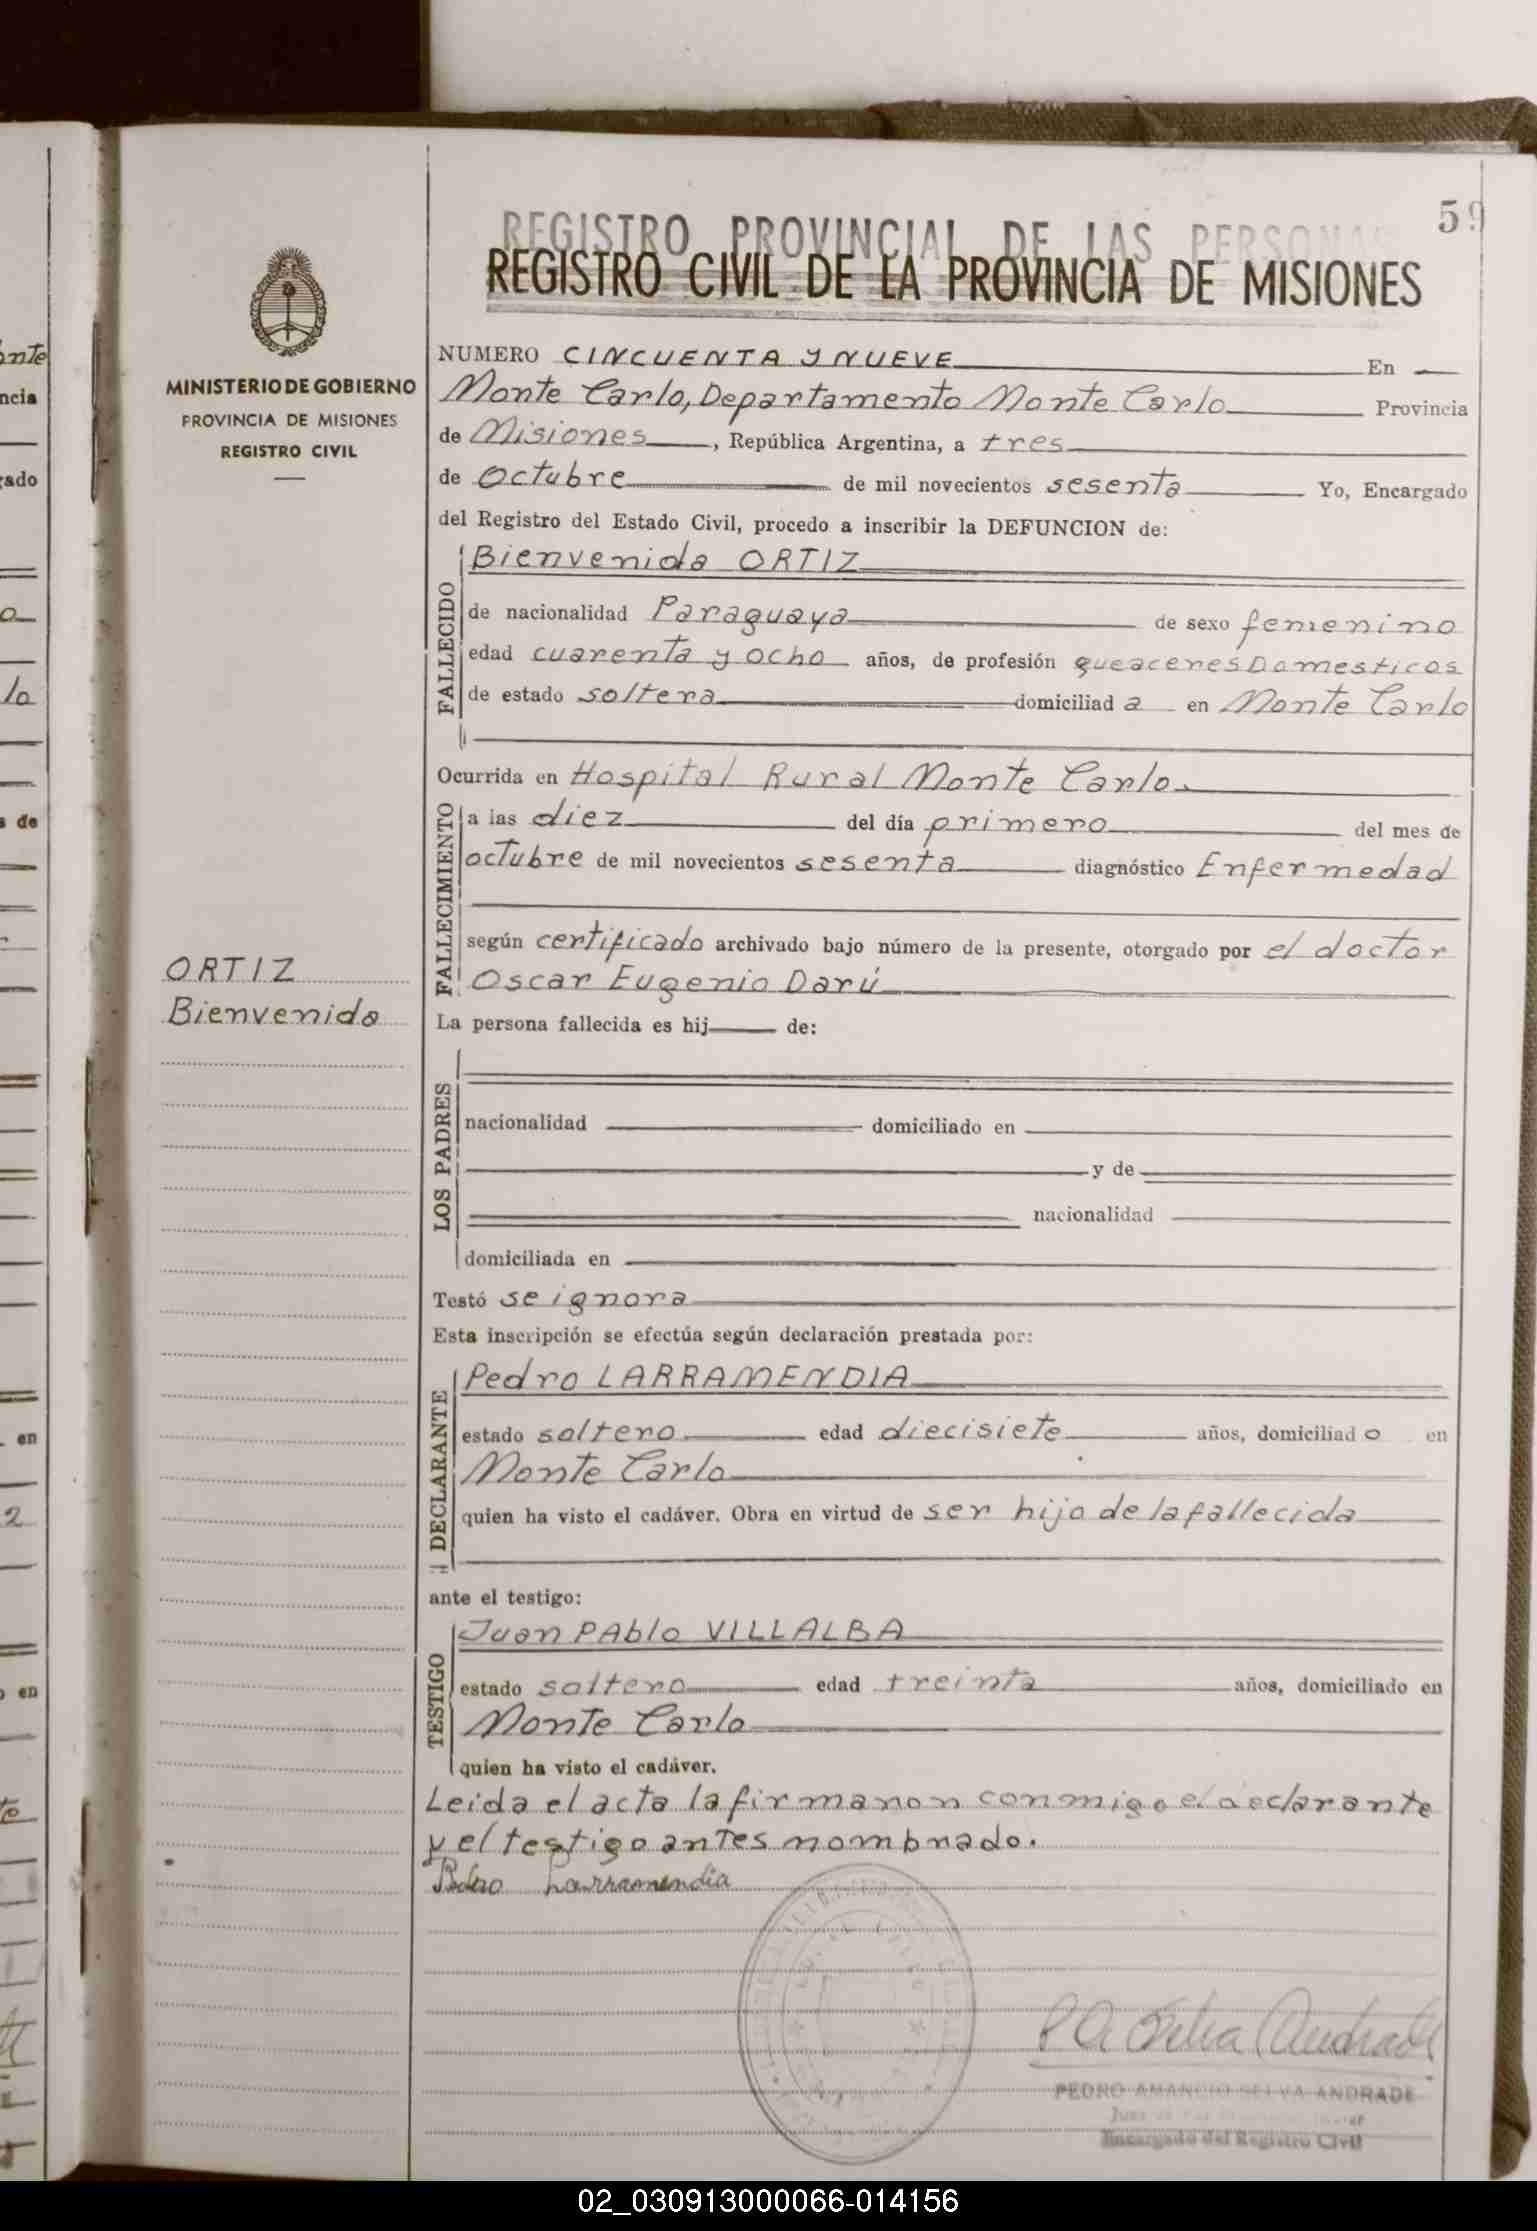 59
REGISTRO PROVINCIAL DE LAS PERSONAS
REGISTRO CIVIL DE LA PROVINCIA DE MISIONES
MINISTERIO DE GOBIERNO
PROVINCIA DE MISIONES
REGISTRO CIVIL
ORTIZ
Bienvenida
NUMERO CINCUENTA Y NUEVE En
Monte Carlo, Departamento Monte Carlo Provincia
de Misiones, República Argentina, a tres
de Octubre de mil novecientos sesenta Yo, Encargado
del Registro del Estado Civil, procedo a inscribir la DEFUNCION de:
FALLECIDO
Bienvenida ORTIZ
de nacionalidad Paraguaya de sexo femenino
edad cuarenta y ocho años, de profesión queaceres Domesticos
de estado soltera domiciliad a en Monte Carlo
Ocurrida en Hospital Rural Monte Carlo
FALLECIMIENTO
a las diez del día primero del mes de
octubre de mil novecientos sesenta diagnóstico Enfermedad
según certificado archivado bajo número de la presente, otorgado por el doctor
Oscar Eugenio Darú
La persona fallecida es hij de:
LOS PADRES
nacionalidad domiciliado en
y de
nacionalidad
domiciliada en
Testó se ignora
Esta inscripción se efectúa según declaración prestada por:
DECLARANTE
Pedro LARRAMENDIA
estado soltero edad diecisiete años, domiciliad o en
Monte Carlo
quien ha visto el cadáver. Obra en virtud de ser hijo de la fallecida
ante el testigo:
TESTIGO
Juan PAblo VILLALBA
estado soltero edad treinta años, domiciliado en
Monte Carlo
quien ha visto el cadáver.
Leida el acta la firmanon conmigo el declarante
y el testigo antes nombnado.
Pedro Larramendia
P A Selva Andrade
PEDRO AMANCIO SELVA ANDRADE
Encargado del Registro Civil
02_030913000066-014156